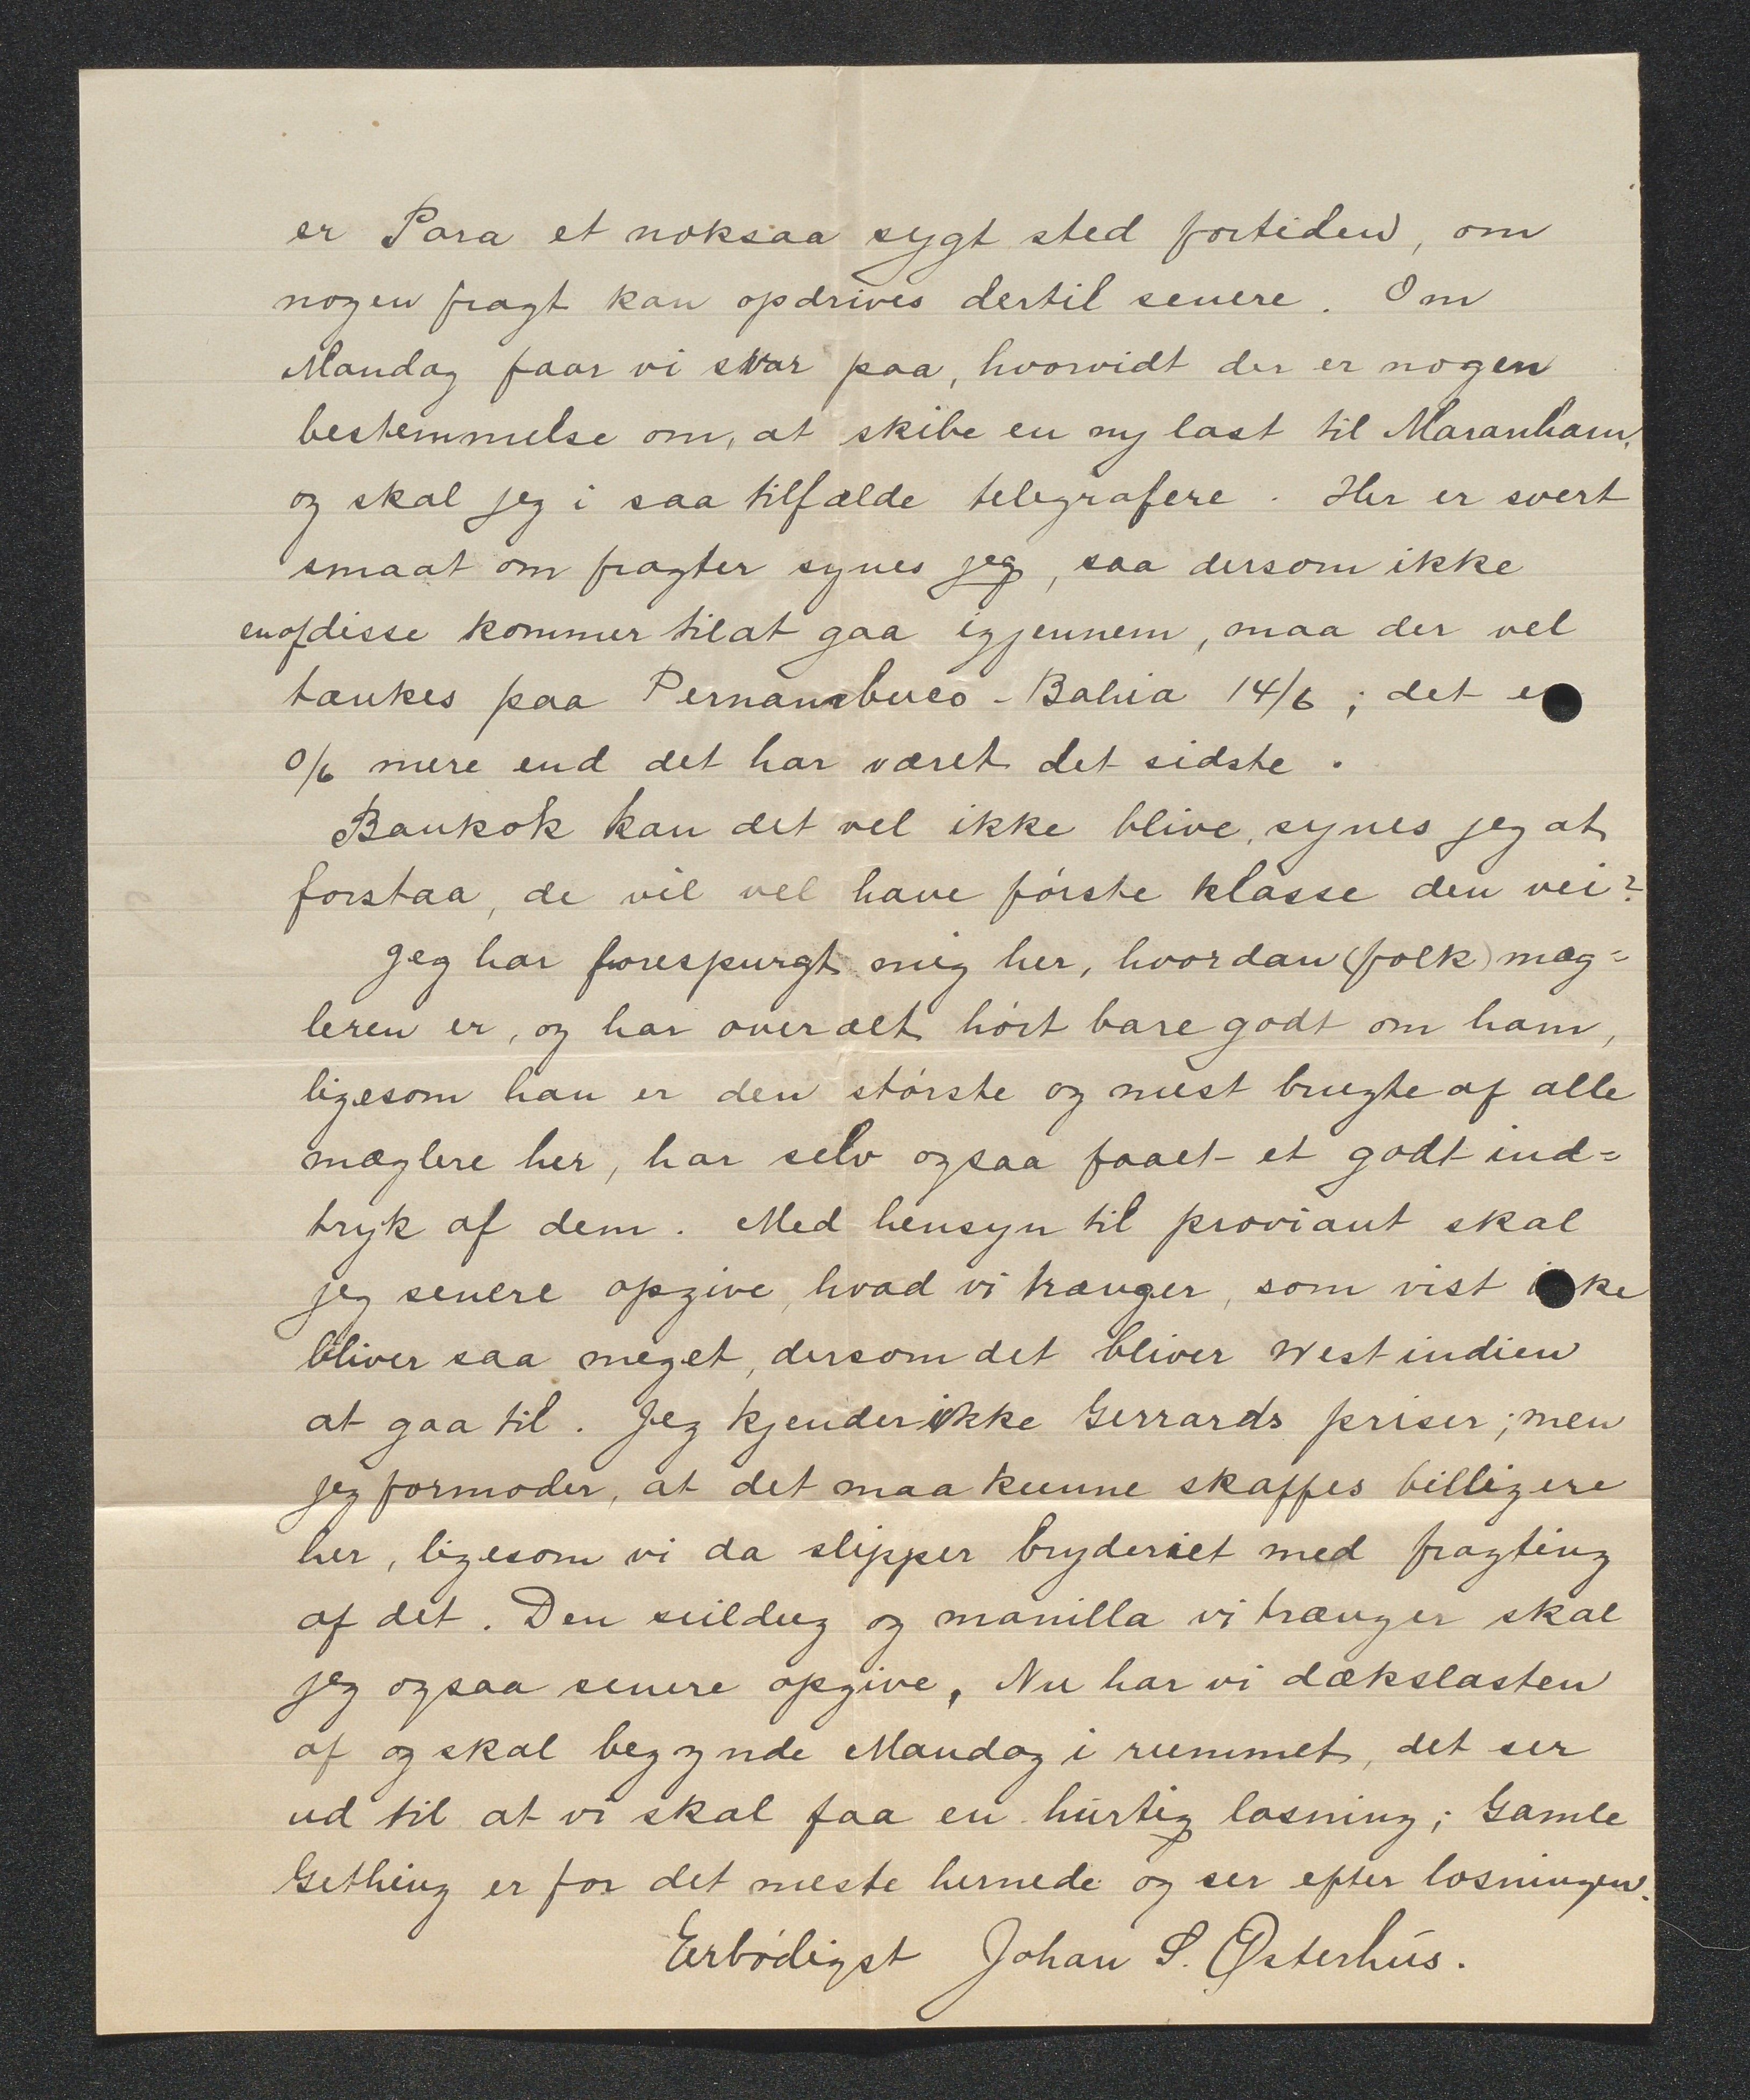 er Para et noksaa sygt sted fortiden, om
nogen fragt kan opdrives dertil senere. Om
Mandag faar vi svar paa, hvorvidt der er nogen
bestemmelse om, at skibe en ny last til Maranham,
og skal jeg i saa tilfælde telegrafere. Her er svert
smaat om fragter synes jeg, saa dersom ikke
en af disse kommer til at gaa igjennem, maa der vel
tænkes paa Pernambuco - Bahia 14/6; det er
0/6 mere end det har været det sidste.
Bankok kan det vel ikke blive, synes jeg at
forstaa, de vil vel have første klasse den vei?
Jeg har forespurgt mig her, hvordan (folk) mæg=
leren er, og har overalt hørt bare godt om ham,
ligesom han er den største og mest brugte af alle
mæglere her, har selv ogsaa faaet et godt ind=
tryk af dem. Med hensyn til proviant skal
jeg senere opgive, hvad vi trænger, som vist ikke
bliver saa meget, dersom det bliver Westindien
at gaa til. Jeg kjender ikke Gerrards priser; men
jeg formoder, at det maa kunne skaffes billigere
her, ligesom vi da slipper bryderiet med fragting
af det. Den seildug og manilla vi trænger skal
jeg ogsaa senere opgive. Nu har vi dækslasten
af og skal begynde Mandag i rummet, det ser
ud til at vi skal faa en hurtig losning; Gamle
Gething er for det meste hernede og ser efter losningen.
Ærbødigst Johan S. Østerhus.